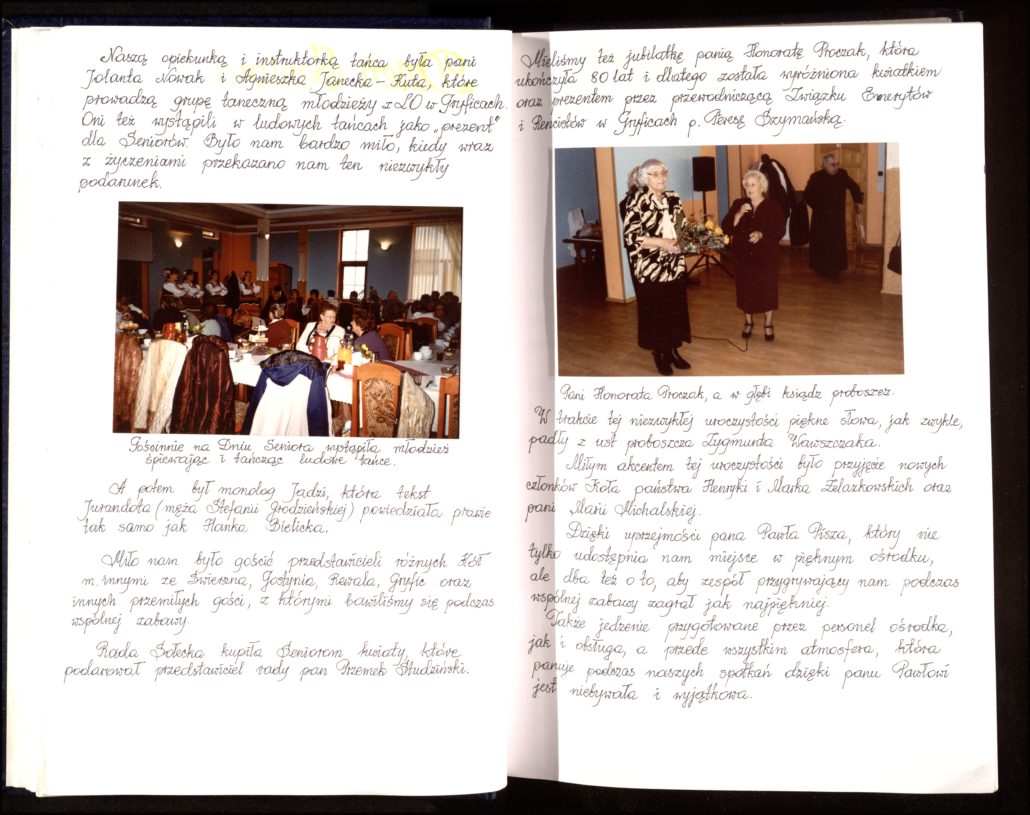 Naszą opiekunką i instruktorką tańca była pani
Jolanta Nowak i Agnieszka Janecka – Kuta, które
prowadzą grupę taneczną młodzieży z LO w Gryficach.
Oni też wystąpili w ludowych tańcach jako „prezent”
dla Seniorów. Było nam bardzo miło, kiedy wraz
z życzeniami przekazano nam ten niezwykły
podarunek.
Gościnnie na Dniu Seniora wystąpiła młodzież
śpiewając i tańcząc ludowe tańce.
A potem był monolog Jadzi, która tekst
Jurandota (męża Stefanii Grodzieńskiej) powiedziała prawie
tak samo jak Hanka Bielicka.
Miło nam było gościć przedstawicieli różnych Kół
m.innymi ze Świerzna, Gostynia, Rewala, Gryfic oraz
innych przemiłych gości, z którymi bawiliśmy się podczas
wspólnej zabawy.
Rada Sołecka kupiła Seniorom kwiaty, które
podarował przedstawiciel rady pan Przemek Studziński.
Mieliśmy też jubilatkę panią Honoratę Proczak, która
ukończyła 80 lat i dlatego została wyróżniona kwiatkiem
oraz prezentem przez przewodniczącą Związku Emerytów
i Rencistów w Gryficach p. Teresę Szymańską.
Pani Honorata Proczak, a w głębi ksiądz proboszcz.
W trakcie tej niezwykłej uroczystości piękne słowa, jak zwykle,
padły z ust proboszcza Zygmunta Wawszczaka.
Miłym akcentem tej uroczystości było przyjęcie nowych
członków Koła państwa Henryki i Marka Żelazkowskich oraz
pani Marii Michalskiej.
Dzięki uprzejmości pana Pawła Pisza, który nie
tylko udostępnia nam miejsce w pięknym ośrodku,
ale dba też o to, aby zespół przygrywający nam podczas
wspólnej zabawy zagrał jak najpiękniej.
Także jedzenie przygotowane przez personel ośrodka,
jak i obsługa, a przede wszystkim atmosfera, która
panuje podczas naszych spotkań dzięki panu Pawłowi
jest niebywała i wyjątkowa.